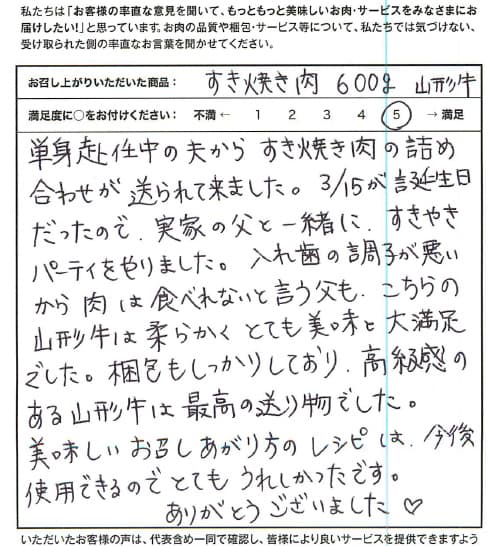 私たちは「お客様の率直な意見を聞いて、もっともっと美味しいお肉・サービスをみなさまにお
届けしたい！」と思っています。お肉の品質や梱包・サービス等について、私たちでは気づけない、
受け取られた側の率直なお言葉を聞かせてください。
お召し上がりいただいた商品： すき焼き肉 600g 山形牛
満足度に○をお付けください： 不満 ← 1 2 3 4 5 → 満足
単身赴任中の夫から すき焼き肉の詰め
合わせが 送られて来ました。3/15が誕生日
だったので、実家の父と一緒に、すきやき
パーティをやりました。入れ歯の調子が悪い
から 肉は食べれないと言う父も、こちらの
山形牛は柔らかく とても美味と 大満足
でした。梱包もしっかりしており、高級感の
ある山形牛は最高の送り物でした。
美味しいお召しあがり方の レシピは、今後
使用できるので とても うれしかったです。
ありがとうございました♡
いただいたお客様の声は、代表含め一同で確認し、皆様により良いサービスを提供できますよう